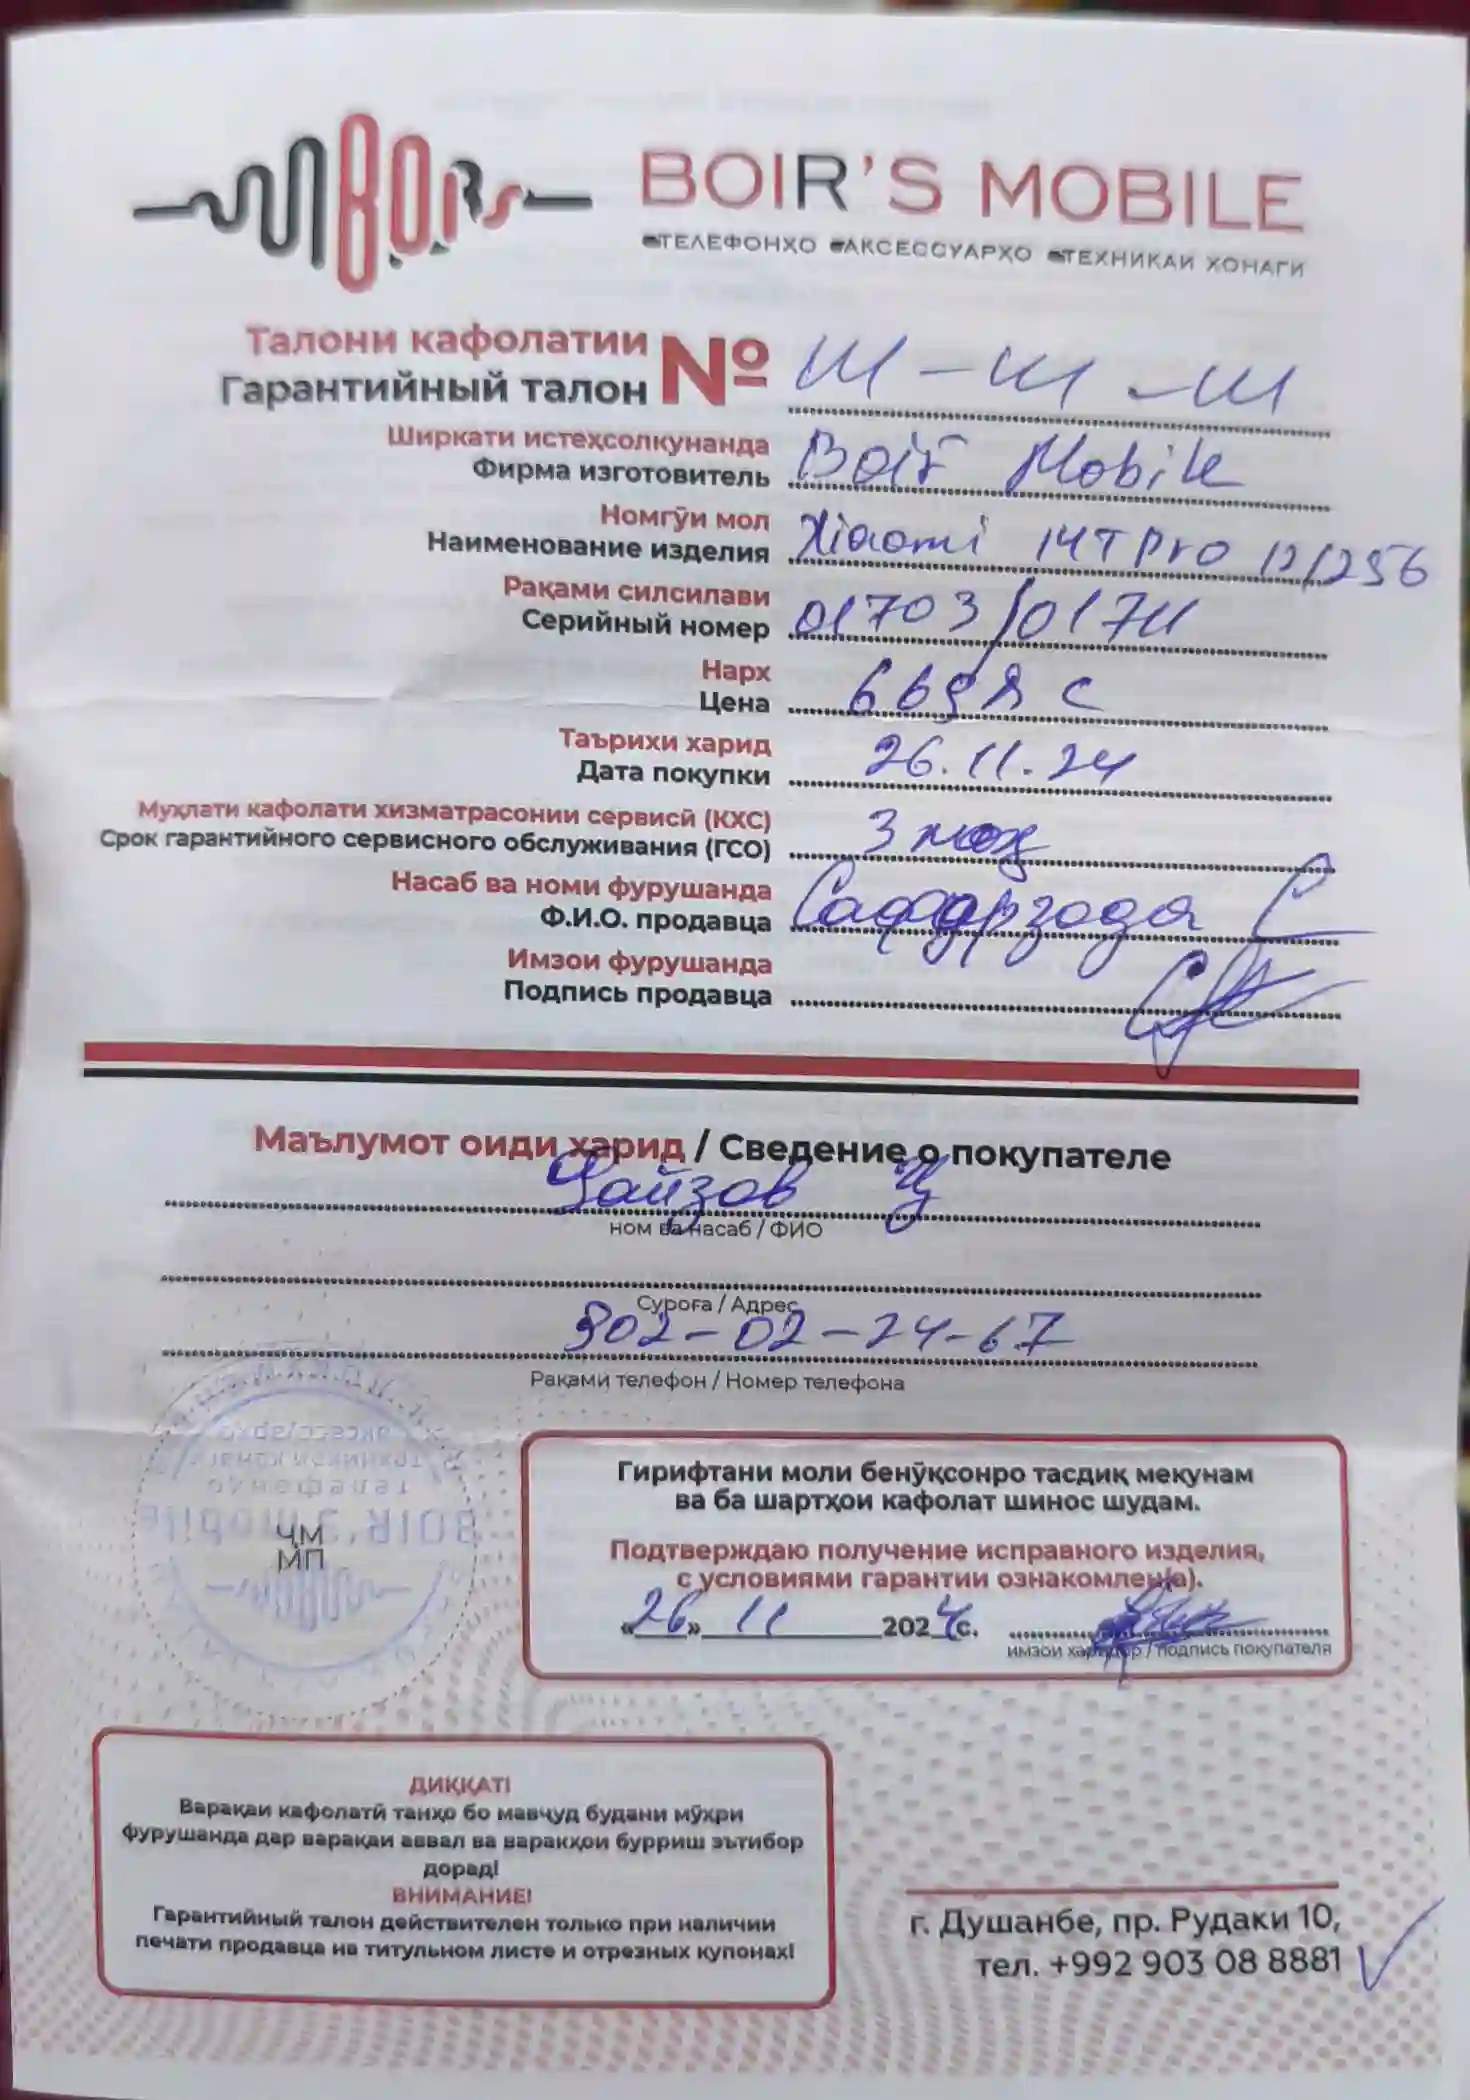 BOIR'S MOBILE
ТЕЛЕФОНҲО АКСЕССУАРҲО ТЕХНИКАИ ХОНАГИ
Талони кафолатии
Гарантийный талон №
Ширкати истеҳсолкунанда
Фирма изготовитель Boir Mobile
Номгӯи мол
Наименование изделия Xiaomi 14T Pro 12/256
Рақами силсилави
Серийный номер 01703/01711
Нарх
Цена
Таърихи харид
Дата покупки 26.11.24
Муҳлати кафолати хизматрасонии сервисӣ (КХС)
Срок гарантийного сервисного обслуживания (ГСО) 3 моҳ
Насаб ва номи фурушанда
Ф.И.О. продавца Сафарзода С
Имзои фурушанда
Подпись продавца
Маълумот оиди харид / Сведение о покупателе
Файзов
ном ва насаб / ФИО
Суроға / Адрес
902-02-24-67
Рақами телефон / Номер телефона
ҶМ
МП
BOIR'S mobile
Гирифтани моли бенӯқсонро тасдиқ мекунам
ва ба шартҳои кафолат шинос шудам.
Подтверждаю получение исправного изделия,
с условиями гарантии ознакомлен(а).
«26» 11 2024с.
имзои харидор / подпись покупателя
ДИҚҚАТ!
Варақаи кафолатӣ танҳо бо мавҷуд будани мӯҳри
фурушанда дар варақаи аввал ва варақҳои бурриш эътибор
дорад!
ВНИМАНИЕ!
Гарантийный талон действителен только при наличии
печати продавца на титульном листе и отрезных купонах!
г. Душанбе, пр. Рудаки 10,
тел. +992 903 08 8881